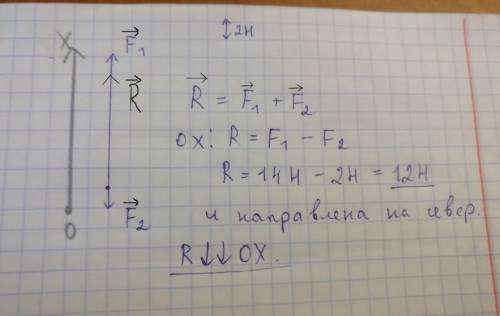 2Н
X
F⃗₁
R⃗
F⃗₂
O
R⃗ = F⃗₁ + F⃗₂
OX: R = F₁ − F₂
R = 14Н − 2Н = 12Н
и направлена на север.
R↓↓OX.